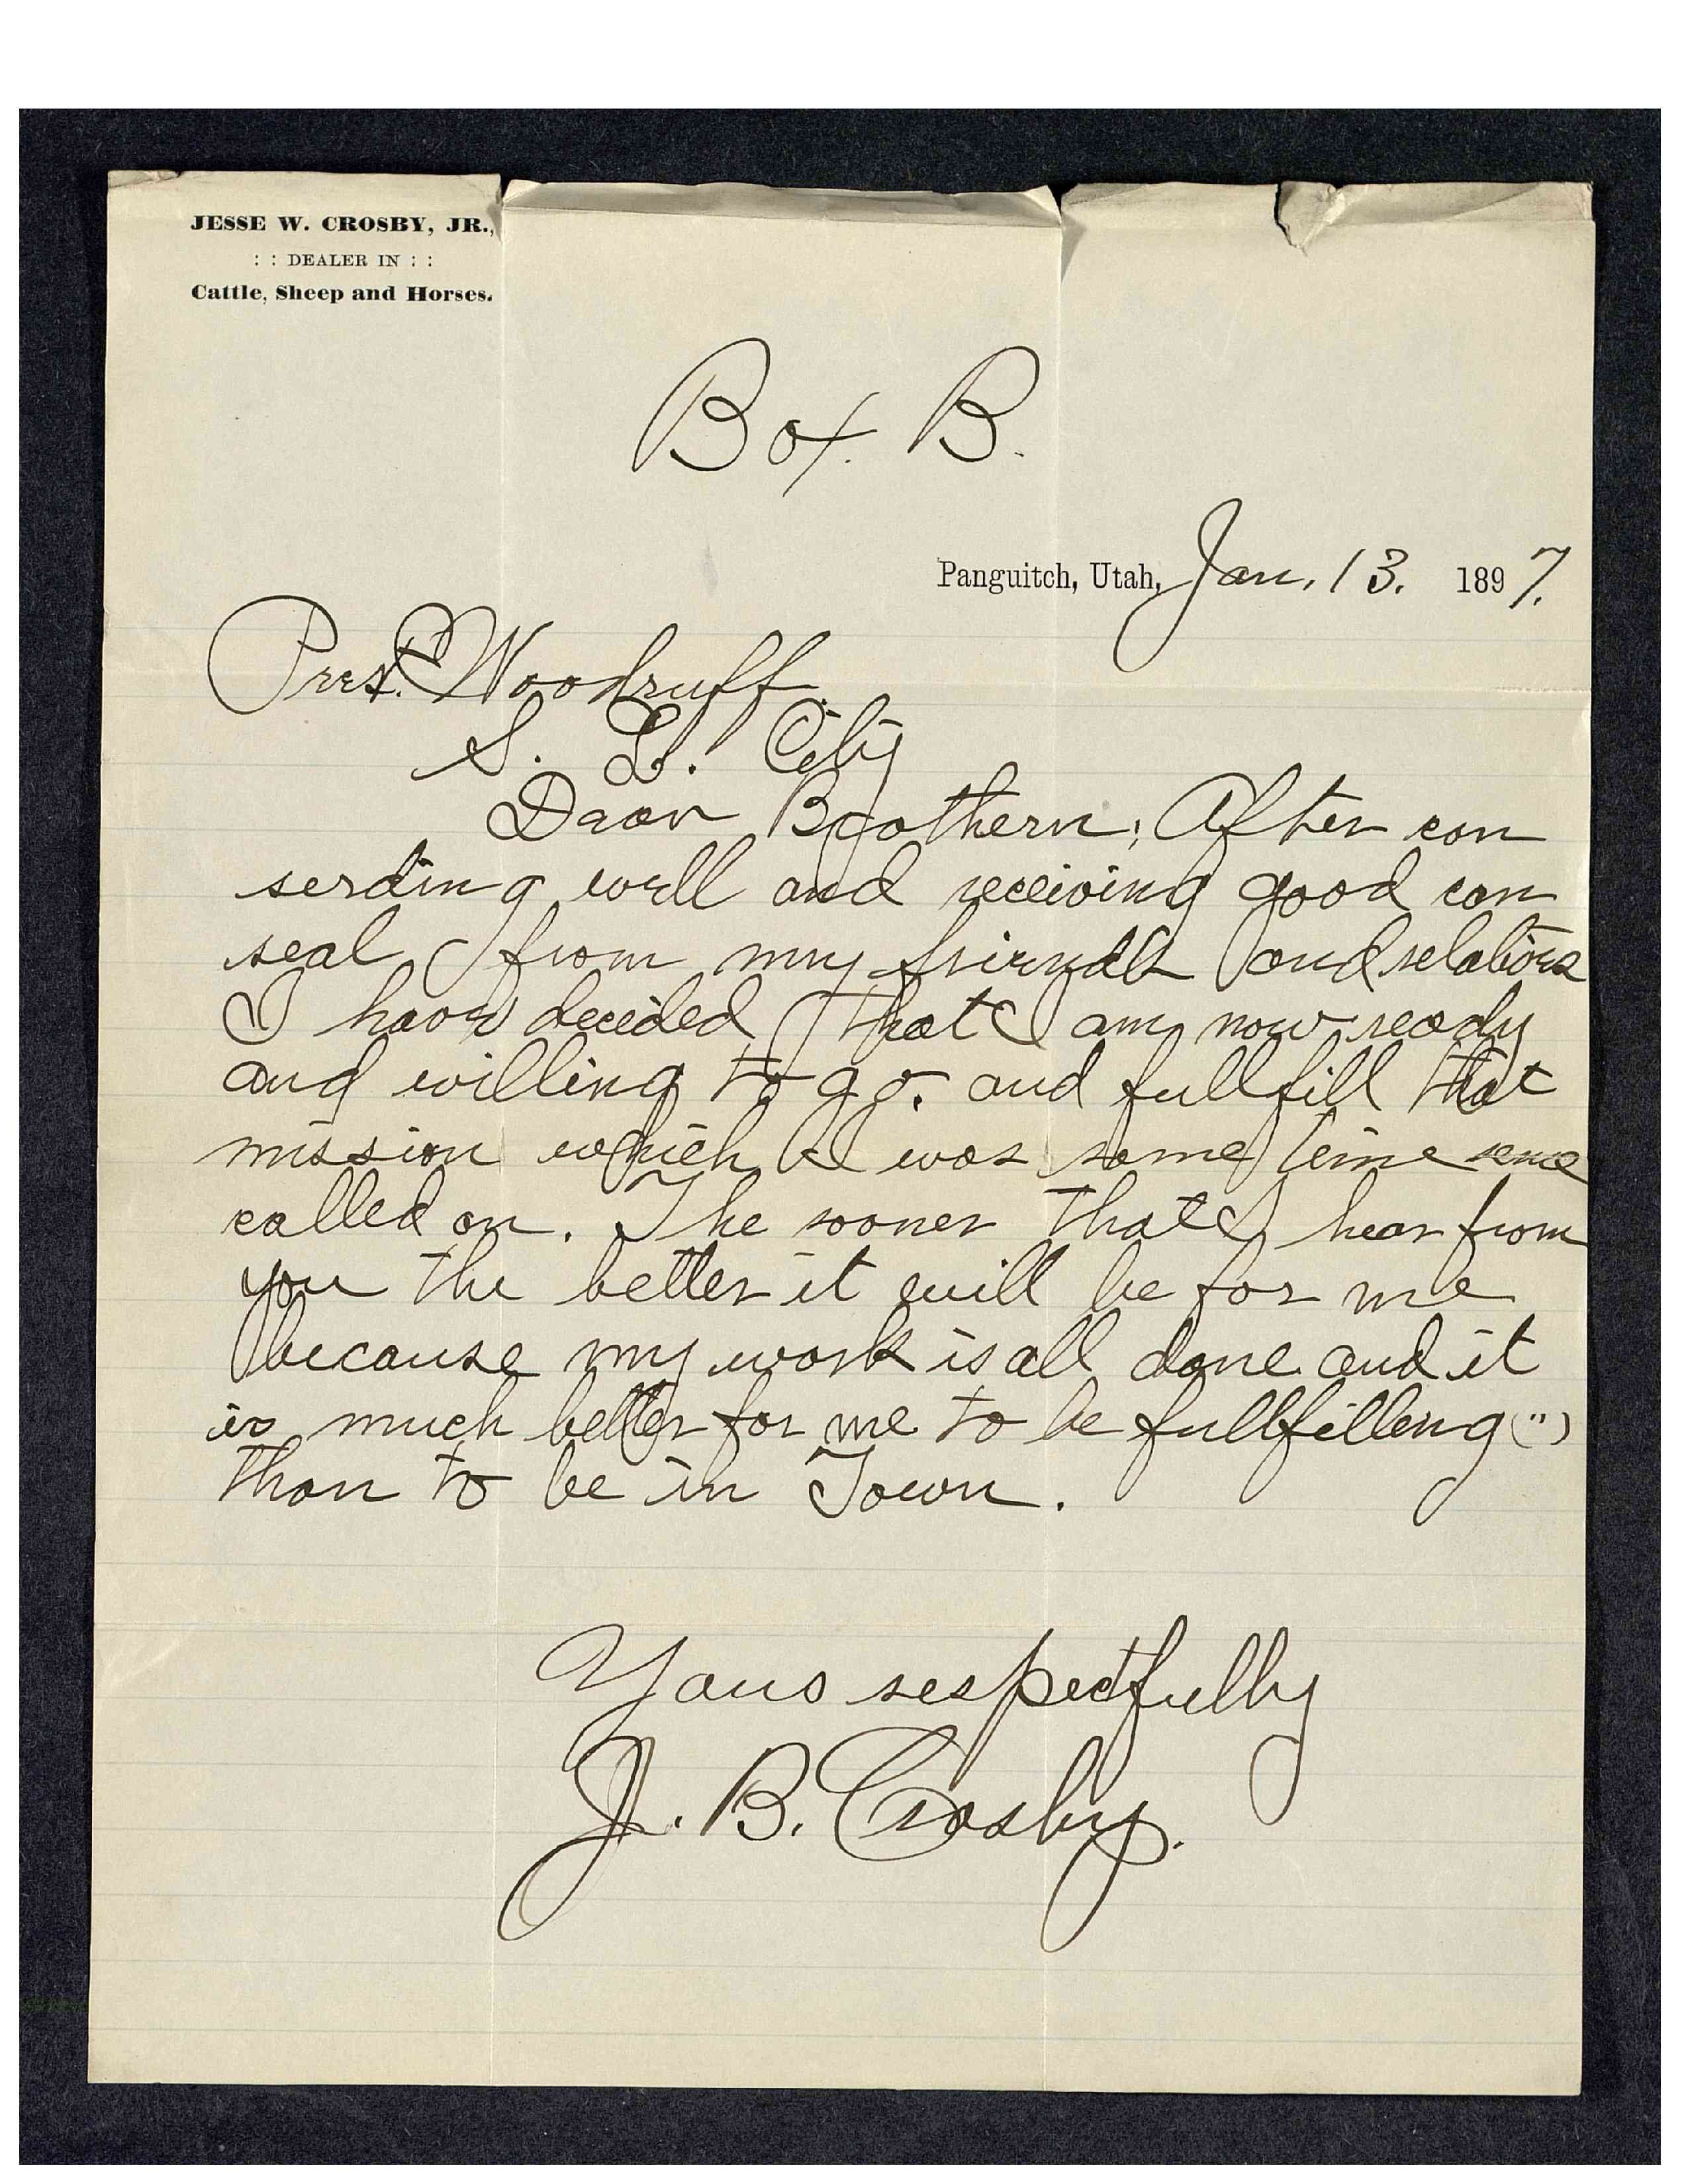 JESSE W. CROSBY, JR.,
: : DEALER IN : :
Cattle, Sheep and Horses.
Box. B.
Panguitch, Utah, Jan. 13. 1897.
Prest. W Woodruff.
S. L. City
Daor Broothern; After con
serding well and receiving good con
seal from my friends and relations
I have decided that I am now ready
and willing to go. and fullfill that
mission which I was some time sence
called on. The sooner that I hear from
you the better it will be for me
because my work is all done and it
is much better for me to be fullfilling (")
than to be in Town.
Yours respectfully
J. B. Crosby.